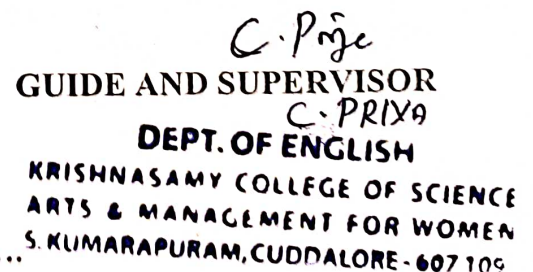 C. Priya
GUIDE AND SUPERVISOR
C. PRIYA
DEPT. OF ENGLISH
KRISHNASAMY COLLEGE OF SCIENCE
ARTS & MANAGEMENT FOR WOMEN
S. KUMARAPURAM, CUDDALORE - 607 109